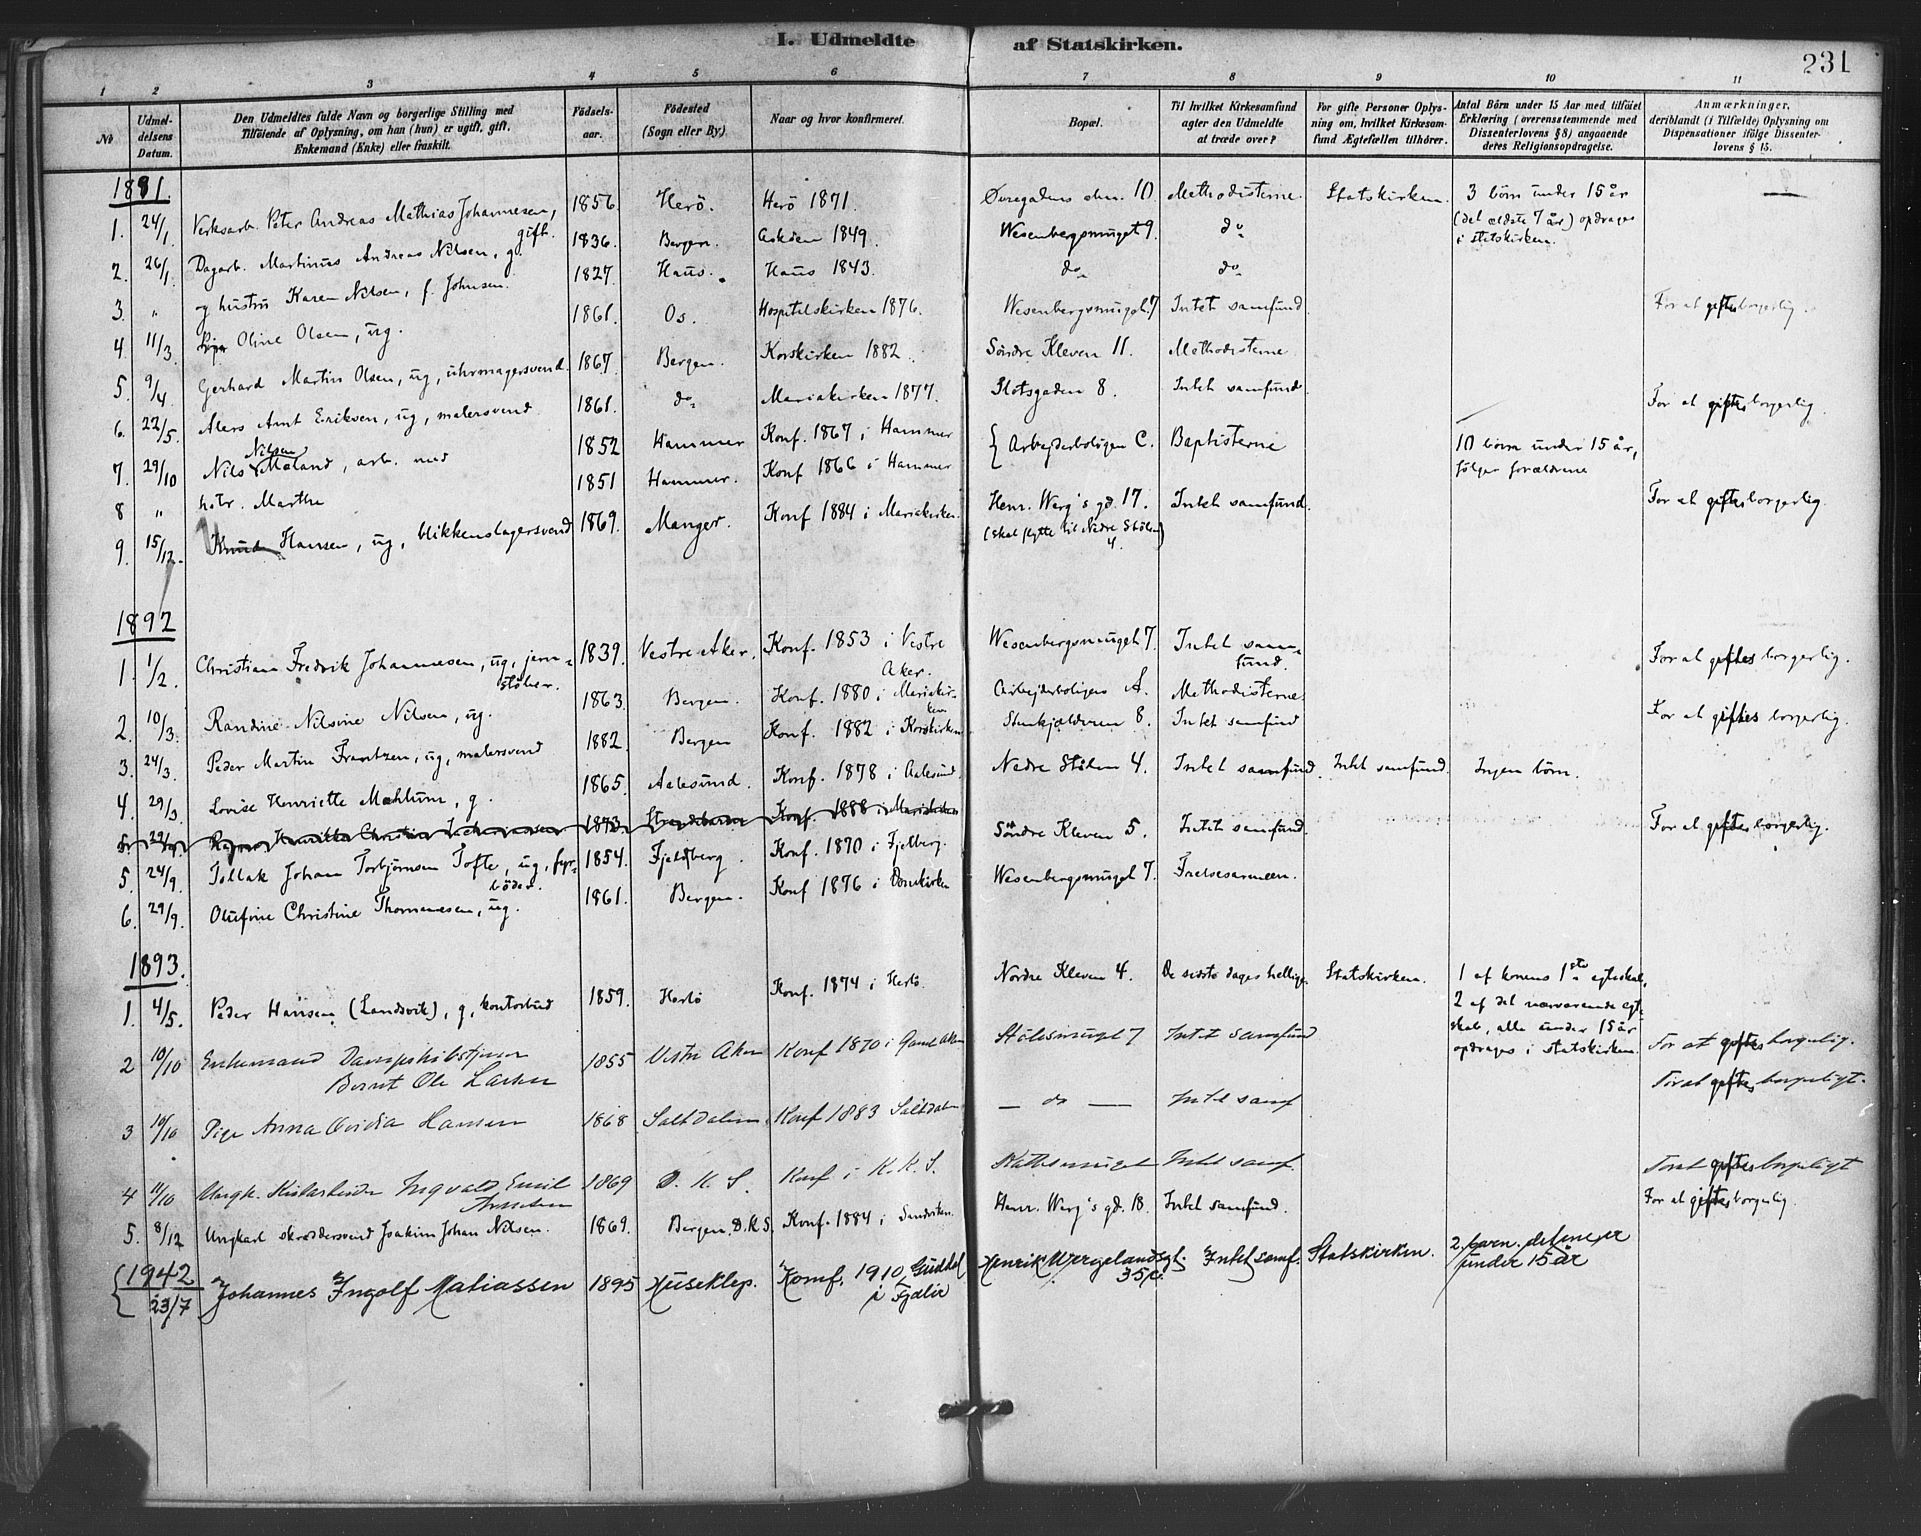 I. Udmeldte af Statskirken.
231
1 2 3 4 5 6 7 8 9 10 11
No
Udmeldelsens Datum.
Den Udmeldtes fulde Navn og borgerlige Stilling med
Tilføiende af Oplysning, om han (hun) er ugift, gift,
Enkemand (Enke) eller fraskilt.
Fødselsaar.
Fødested
(Sogn eller By).
Naar og hvor konfirmeret.
Bopæl.
Til hvilket Kirkesamfund
agter den Udmeldte
at træde over?
For gifte Personer Oplysning om, hvilket Kirkesamfund Ægtefællen tilhører.
Antal Børn under 15 Aar med tilføiet
Erklæring (overensstemmende med
Dissenterlovens § 8) angaaende
deres Religionsopdragelse.
Anmærkninger,
deriblandt (i Tilfælde) Oplysning om
Dispensationer ifølge Dissenterlovens § 15.
1891.
1. 24/1. Verksarb. Peter Andreas Mathias Johannesen, gift. 1856. Herö. Herö 1871. Øvregadens alm. 10 Methodisterne Statskirken. 3 börn under 15 år (det ældste 7 år) opdrages i statskirken. —
2. 26/1. Dagarb. Martinus Andreas Nilsen, g. 1836. Bergen. Asköen 1849. Wesenbergsmuget 9. do
3. " og hustru Karen Nilsen, f. Johnsen. 1827. Haus. Haus 1843. do do
4. 11/3. Pige Oline Olsen, ug. 1861. Os. Hospitalskirken 1876. Wesenbergsmuget 7 Intet samfund. For at giftes borgerlig.
5. 9/4. Gerhard Martin Olsen, ug, uhrmagersvend. 1867. Bergen. Korskirken 1882. Söndre Kleven 11. Methodisterne
6. 22/5. Anders Arnt Eriksen, ug, malersvend. 1861. do Mariakirken 1877. Slotsgaden 8. Intet samfund. For at giftes borgerlig.
7. 29/10 Nils Nilsen Mæland, arb. med 1852 Hammer Konf. 1867 i Hammer { Arbejderboligen C. Baptisterne 10 börn under 15 år, følger forældrene
8 " hstr. Marthe 1851 Hammer. Konf 1866 i Hammer
9. 15/12. Knud Hansen, ug, blikkenslagersvend 1869. Manger. Konf 1884 i Mariekirken. Henr. Werg's gd. 17. (skal flytte til Nedre Stölen 4.) Intet samfund. For at giftes borgerlig.
1892
1. 1/2. Christian Fredrik Johannesen, ug, jernstöber. 1839. Vestre Aker. Konf. 1853 i Vestre Aker. Wesenbergsmuget 7. Intet samfund. For at giftes borgerlig.
2. 10/3. Randine Nilsine Nilsen, ug. 1863. Bergen. Konf. 1880 i Mariekirken Arbejderboligen A. Methodisterne
3. 24/3. Peder Martin Frantzen, ug, malersvend 1882. Bergen Konf. 1882 i Korskirken Stenkjælderen 8. Intet samfund For at giftes borgerlig.
4. 29/3. Lovise Henriette Mæhlum, g. 1865. Aalesund. Konf. 1878 i Aalesund. Nedre Stölen 4. Intet samfund. Intet samfund. Ingen börn.
5. Henrikke Christine Johannesen 1873. Strandebarm Konf. 1888 i Mariekirken
5. 24/9. Tollak Johan Torbjörnsen Tofte, ug, fyrböder. 1854. Fjeldberg. Konf. 1870 i Fjelberg. Söndre Kleven 5. Intet samfund. For at giftes borgerlig.
6. 29/9. Olufine Christine Thomassen, ug. 1861. Bergen. Konf 1876 i Domkirken Wesenbergsmuget 7. Frelsesarmeen.
1893.
1. 4/5. Peder Hansen (Landsvik), g, kontorbud 1859. Herlö Konf. 1874 i Herlö. Nordre Kleven 4. De sidste dages hellige. Statskirken. 1 af konens 1ste egteskab, 2 af det nærværende egteskab, alle under 15 år opdrages i statskirken.
2 10/10 Enkemand Dampskibstjener Bernt Ole Larsen 1855 Vestre Aker Konf 1870 i Gaml Aker Stölsmuget 7 Intet samfund For at giftes borgerlig.
3 10/10 Pige Anna Ovidia Hansen 1868 Saltdalen. Konf 1883 Saltdalen — do — Intet samf For at giftes borgerligt.
4 11/10 Ungk. Ingvald Emil 1869 D. K. S. Konf i K. K. S. Intet samf. For at giftes borgerligt
5. 8/12 Ungkarl skræddersvend Joakim Johan Nilsen. 1869. Bergen. D.K.S. Konf. 1884 i Sandviken. Henr. Werg's gd. 18. Intet samfund. For at giftes borgerlig.
1942
23/7 Johannes Ingolf Matiassen 1895 Huseklep. Konf. 1910 Guddal i Fjaler Henrik Wergelandsgt. 35 c. Intet samf. Statskirken. 2 barn. det ene er under 15 år